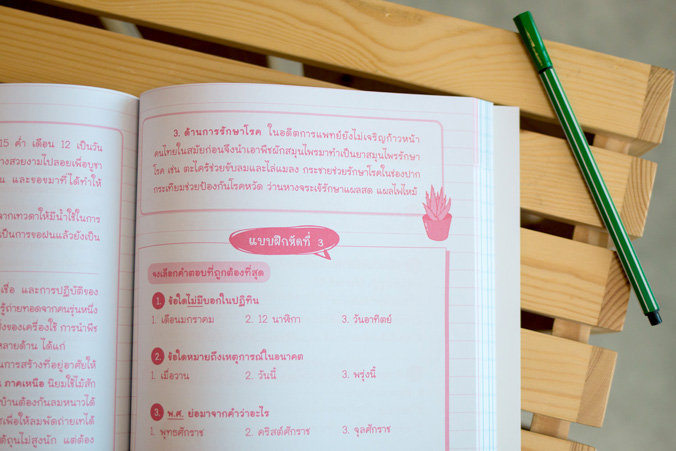 15 ค่ำ เดือน 12 เป็นวัน
างสวยงามไปลอยเพื่อบูชา
น และขอขมาที่ได้ทำให้
จากเทวดาให้มีน้ำใช้ในการ
เป็นการขอฝนแล้วยังเป็น
เชื่อ และการปฏิบัติของ
รู้ถ่ายทอดจากคนรุ่นหนึ่ง
ของเครื่องใช้ การนำพืช
หลายด้าน ได้แก่
นการสร้างที่อยู่อาศัยให้
น ภาคเหนือ นิยมใช้ไม้สัก
บ้านต้องกันลมหนาวได้
เพื่อให้ลมพัดถ่ายเทได้
ใต้ถุนไม่สูงนัก แต่ต้อง
3. ด้านการรักษาโรค ในอดีตการแพทย์ยังไม่เจริญก้าวหน้า
คนไทยในสมัยก่อนจึงนำเอาพืชผักสมุนไพรมาทำเป็นยาสมุนไพรรักษา
โรค เช่น ตะไคร้ช่วยขับลมและไล่แมลง กระชายช่วยรักษาโรคในช่องปาก
กระเทียมช่วยป้องกันโรคหวัด ว่านหางจระเข้รักษาแผลสด แผลไฟไหม้
แบบฝึกหัดที่ 3
จงเลือกคำตอบที่ถูกต้องที่สุด
1. ข้อใดไม่มีบอกในปฏิทิน
1. เดือนมกราคม 2. 12 นาฬิกา 3. วันอาทิตย์
2. ข้อใดหมายถึงเหตุการณ์ในอนาคต
1. เมื่อวาน 2. วันนี้ 3. พรุ่งนี้
3. พ.ศ. ย่อมาจากคำว่าอะไร
1. พุทธศักราช 2. คริสต์ศักราช 3. จุลศักราช